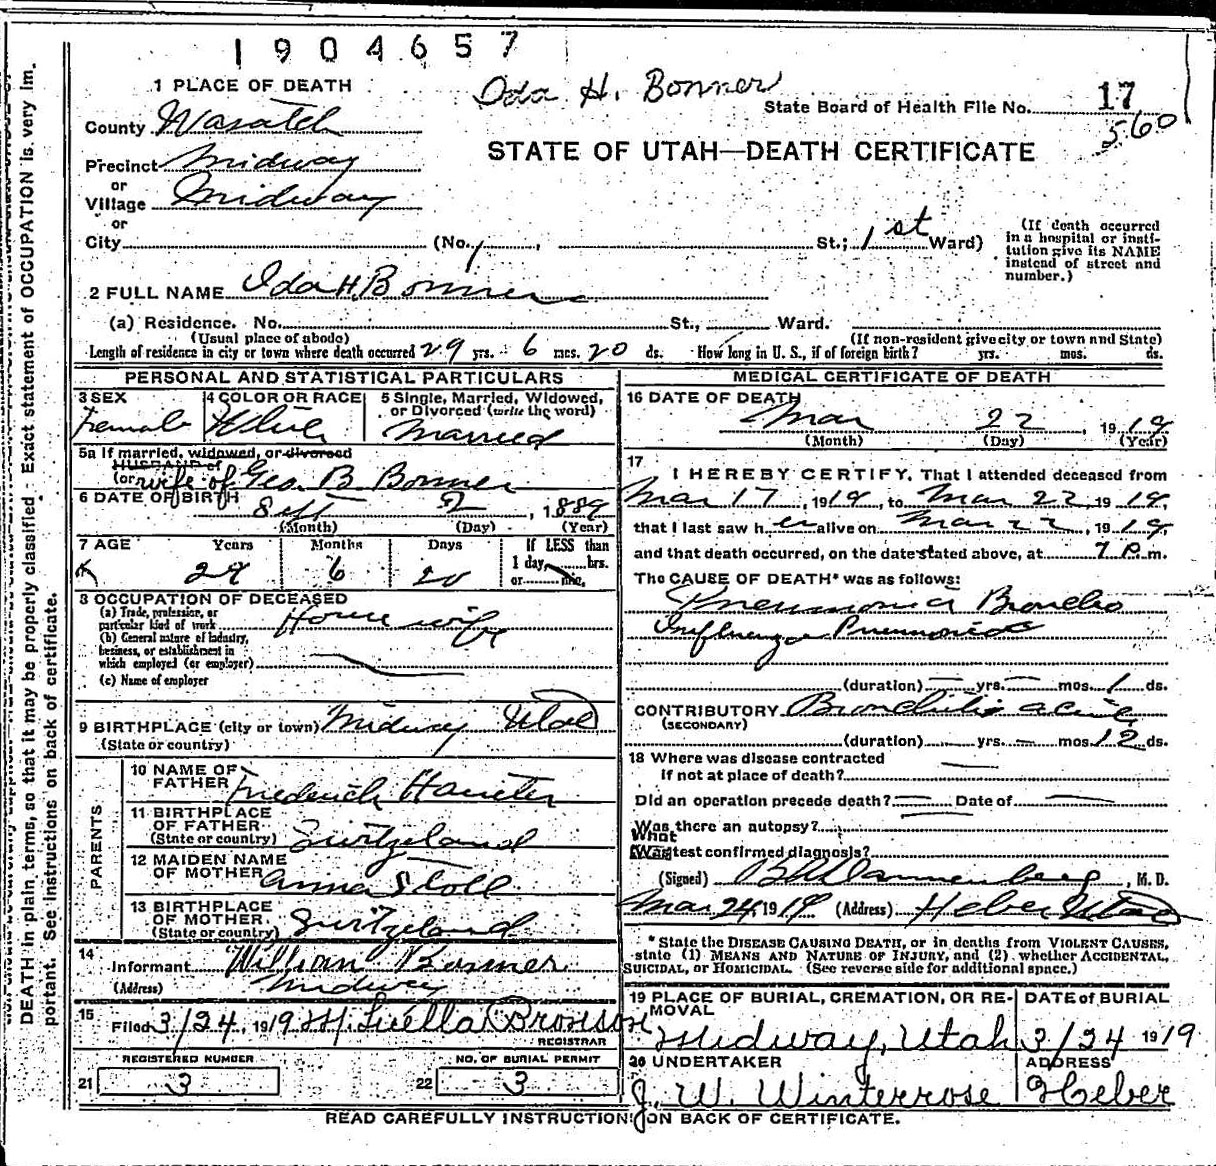 1904657
Ida H. Bonner
State Board of Health File No. 17
560
1 PLACE OF DEATH
County Wasatch
STATE OF UTAH—DEATH CERTIFICATE
Precinct Midway
or
Village Midway
or
City (No. , St.; 1st Ward)
(If death occurred in a hospital or insti-
tution give its NAME
instead of street and
number.)
2 FULL NAME Ida H. Bonner
(a) Residence. No. St., Ward.
(Usual place of abode) (If non-resident give city or town and State)
Length of residence in city or town where death occurred 29 yrs. 6 mos. 20 ds. How long in U. S., if of foreign birth? yrs. mos. ds.
PERSONAL AND STATISTICAL PARTICULARS
3 SEX
Female
4 COLOR OR RACE
White
5 Single, Married, Widowed,
or Divorced (write the word)
Married
5a If married, widowed, or divorced
HUSBAND of
(or) wife of Geo. B Bonner
6 DATE OF BIRTH
Sept 2, 1889
(Month) (Day) (Year)
7 AGE Years Months Days If LESS than
1 day, hrs.
or min.
29 6 20
8 OCCUPATION OF DECEASED
(a) Trade, profession, or
particular kind of work House wife
(b) General nature of industry,
business, or establishment in
which employed (or employer)
(c) Name of employer
9 BIRTHPLACE (city or town) Midway Utah
(State or country)
PARENTS
10 NAME OF
FATHER Friederich Haueter
11 BIRTHPLACE
OF FATHER
(State or country) Switzeland
12 MAIDEN NAME
OF MOTHER Anna Stoll
13 BIRTHPLACE
OF MOTHER.
(State or country) Switzeland
14
Informant William Bonner
(Address) Midway
15
Filed 3/24, 1919 M. Luella Bronson
REGISTRAR
REGISTERED NUMBER
21 3
NO. OF BURIAL PERMIT
22 3
MEDICAL CERTIFICATE OF DEATH
16 DATE OF DEATH
Mar 22, 1919
(Month) (Day) (Year)
17
I HEREBY CERTIFY, That I attended deceased from
Mar 17, 1919, to Mar 22, 1919,
that I last saw her alive on Mar 22, 1919,
and that death occurred, on the date stated above, at 7 P.m.
The CAUSE OF DEATH* was as follows:
Pneumonia Broncho
Influenza Pneumonia
(duration) — yrs. — mos. 1 ds.
CONTRIBUTORY Bronchitis acute
(SECONDARY)
(duration) yrs. — mos. 12 ds.
18 Where was disease contracted
if not at place of death?
Did an operation precede death? — Date of —
Was there an autopsy?
What
(Was test confirmed diagnosis?
(Signed) , M. D.
Mar 24, 1919 (Address) Heber Utah
* State the DISEASE CAUSING DEATH, or in deaths from VIOLENT CAUSES,
state (1) MEANS AND NATURE OF INJURY, and (2) whether ACCIDENTAL,
SUICIDAL, or HOMICIDAL. (See reverse side for additional space.)
19 PLACE OF BURIAL, CREMATION, OR RE-
MOVAL
Midway, Utah
DATE of BURIAL
3/24 1919
20 UNDERTAKER
J. W. Winterrose
ADDRESS
Heber
READ CAREFULLY INSTRUCTION ON BACK OF CERTIFICATE.
DEATH in plain terms, so that it may be properly classified. Exact statement of OCCUPATION is very im-
portant. See instructions on back of certificate.